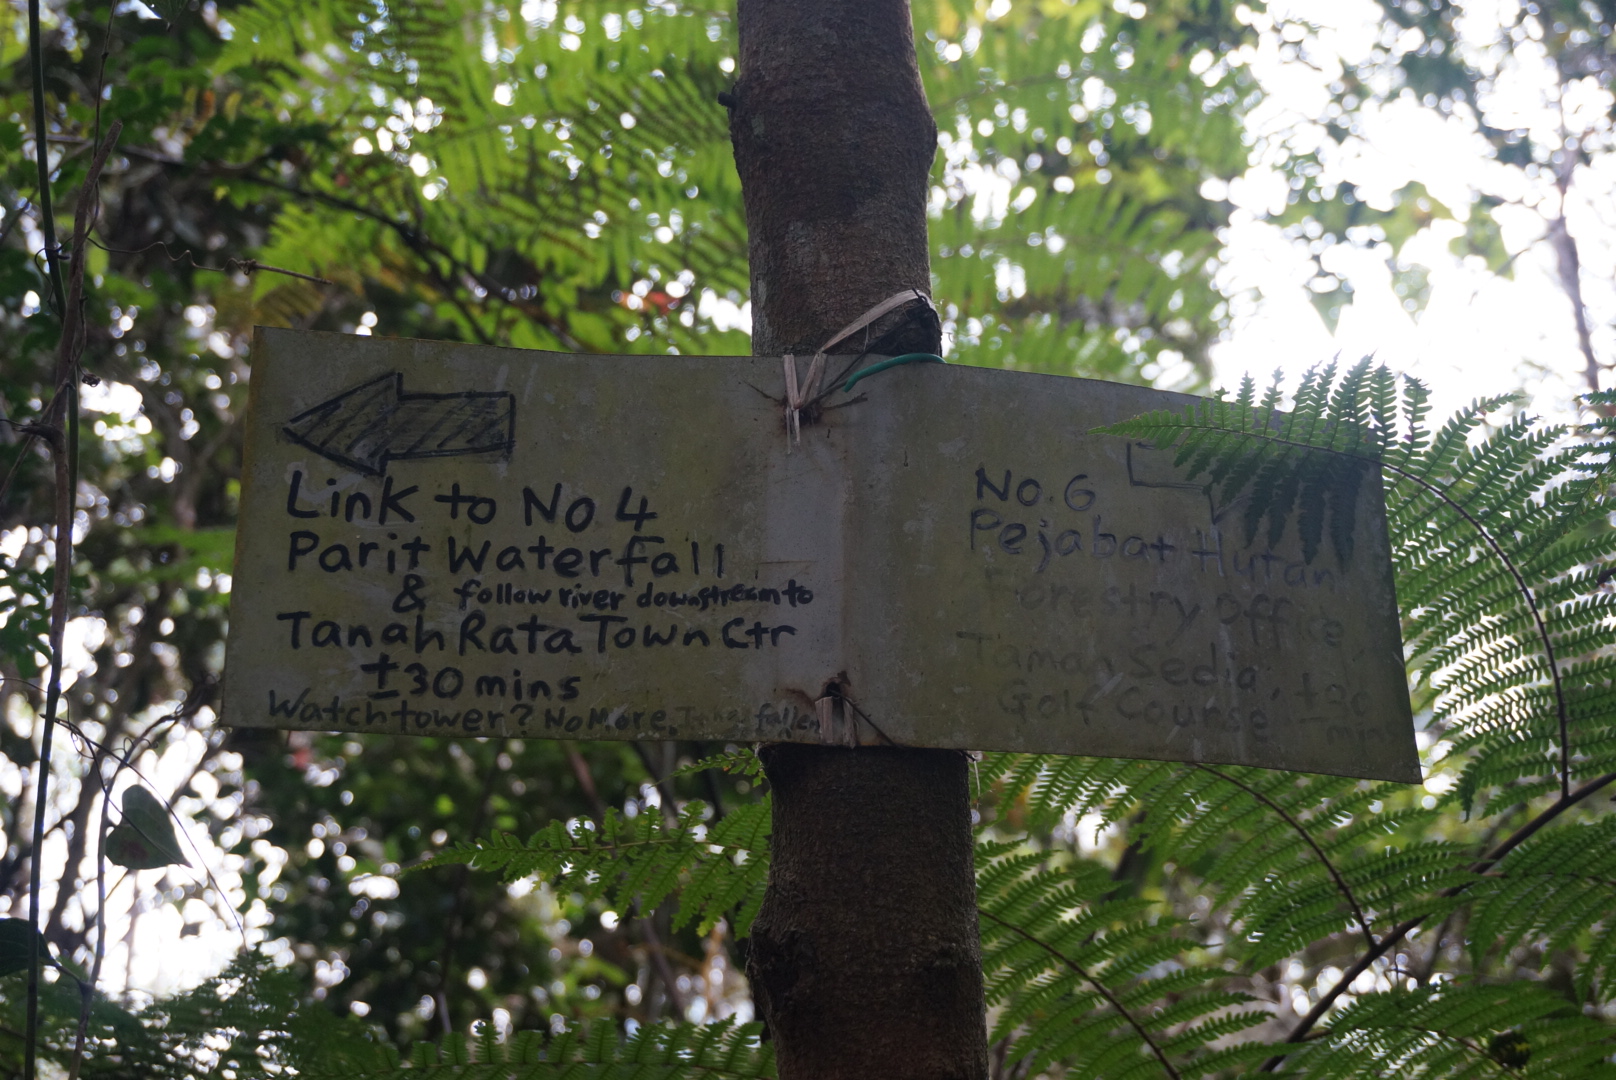 Link to No 4
Parit Waterfall
& follow river downstream to
Tanah Rata Town Ctr
±30 mins
Watchtower? No More. fallen
No. 6
Pejabat Hutan
Forestry Office
Taman Sedia, ±30
Golf Course mins